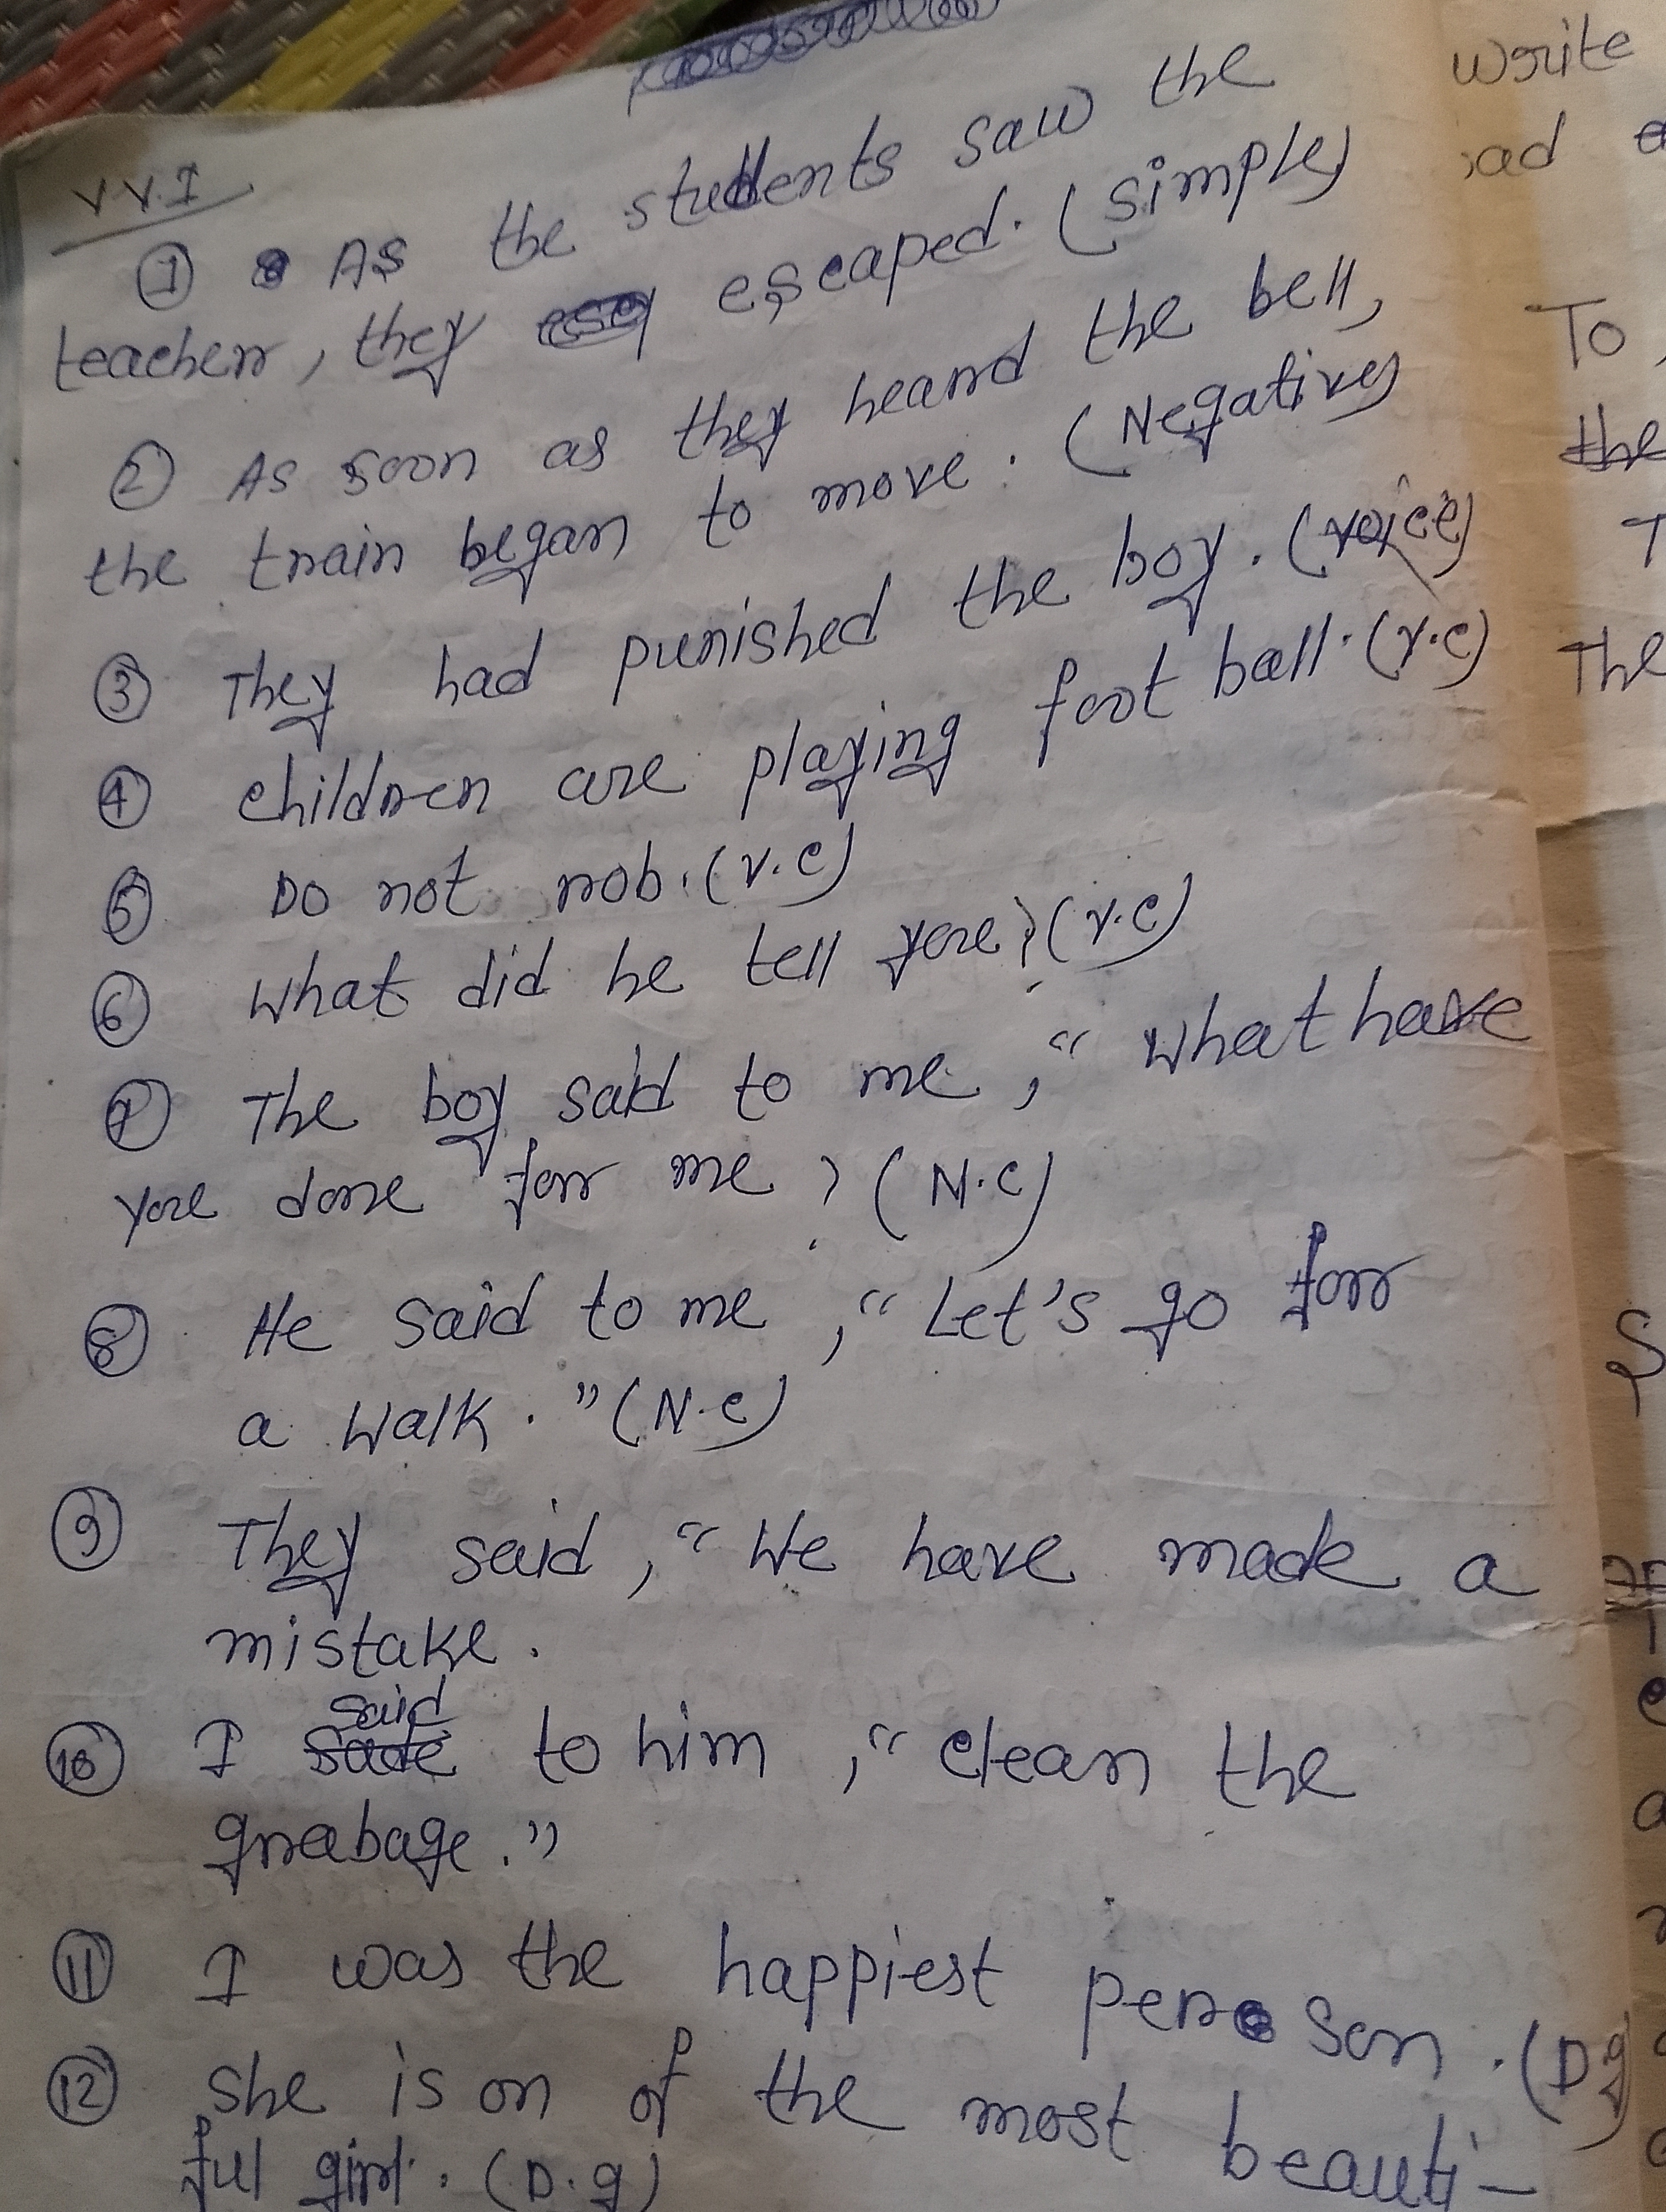 V.V.I
① As the students saw the
teacherr, they escaped. (simple)
② As soon as they hearrd the bell,
the train began to move. (Negative)
③ They had punished the boy. (voice)
④ children are playing foot ball. (v.c)
⑤ Do not rob. (v.c)
⑥ What did he tell you? (v.c)
⑦ The boy said to me, "What have
you done forr me? (N.C)
⑧ He said to me, "Let's go forr
a walk." (N.C)
⑨ They said, "We have made a
mistake.
said
⑩ I to him, "clean the
grabage."
⑪ I was the happiest person. (D.g)
⑫ She is on of the most beauti-
ful girl. (D.g)
write
To,
the
The